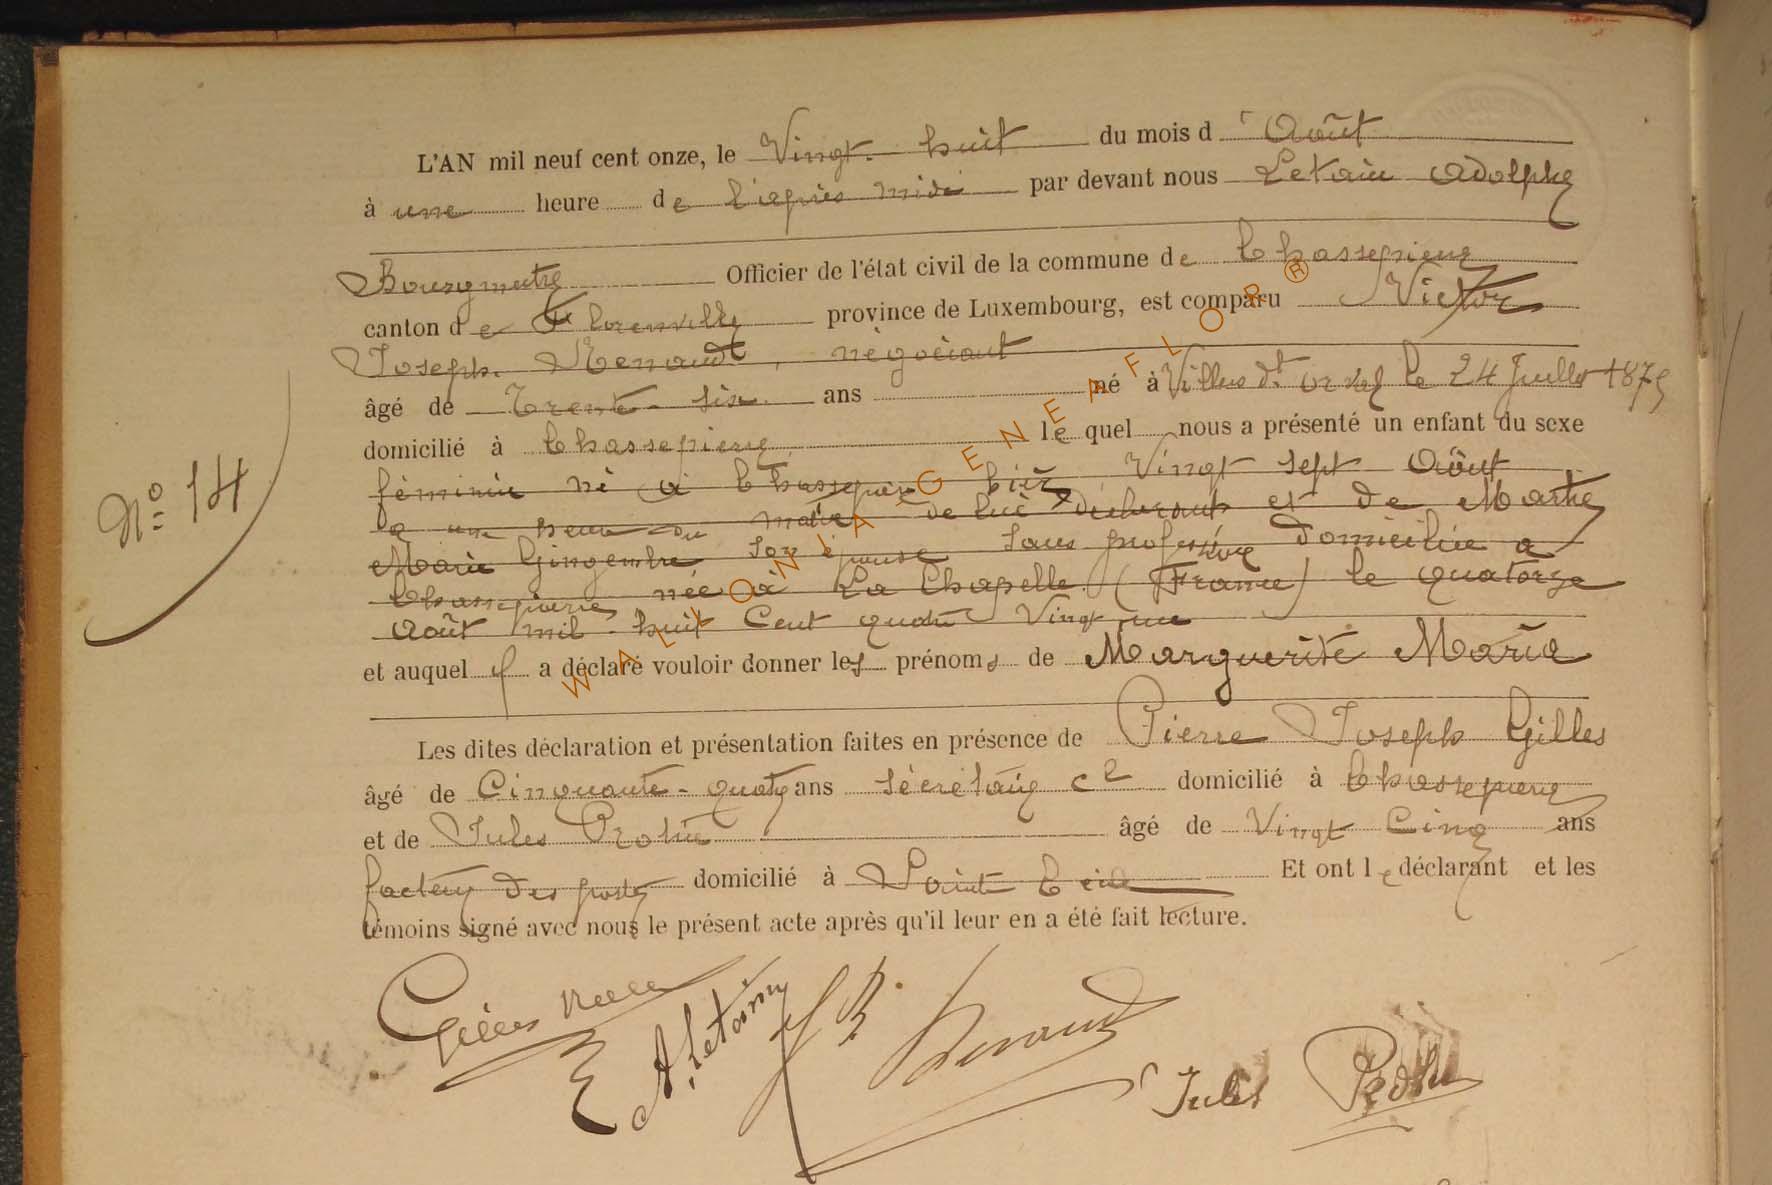 L'AN mil neuf cent onze, le Vingt-huit du mois d'Août
à une heure de l'après midi par devant nous Letain Adolphe
Bourgmestre Officier de l'état civil de la commune de Chassepierre
canton de Florenville province de Luxembourg, est comparu Victor
Joseph Renauld, négociant
âgé de Trente-six ans né à Villers dt Orval le 24 Juillet 1875
domicilié à Chassepierre lequel nous a présenté un enfant du sexe
féminin né à Chassepierre hier Vingt sept Août
à une heure du matin de lui déclarant et de Marthe
Marie Gingembre son épouse sans profession domiciliée à
Chassepierre née à La Chapelle (France) le quatorze
Nº 14
Août mil huit cent quatre Vingt un
et auquel il a déclaré vouloir donner les prénoms de Marguerite Maria
Les dites déclaration et présentation faites en présence de Pierre Joseph Gilles
âgé de Cinquante-quatre ans sécrétaire cl domicilié à Chassepierre
et de Jules Prothe âgé de Vingt Cinq ans
facteur des postes domicilié à Sainte Cécile Et ont le déclarant et les
témoins signé avec nous le présent acte après qu'il leur en a été fait lecture.
Gilles A. Letain J R Renauld
Jules
WALLONIA GENEAFLOR ®